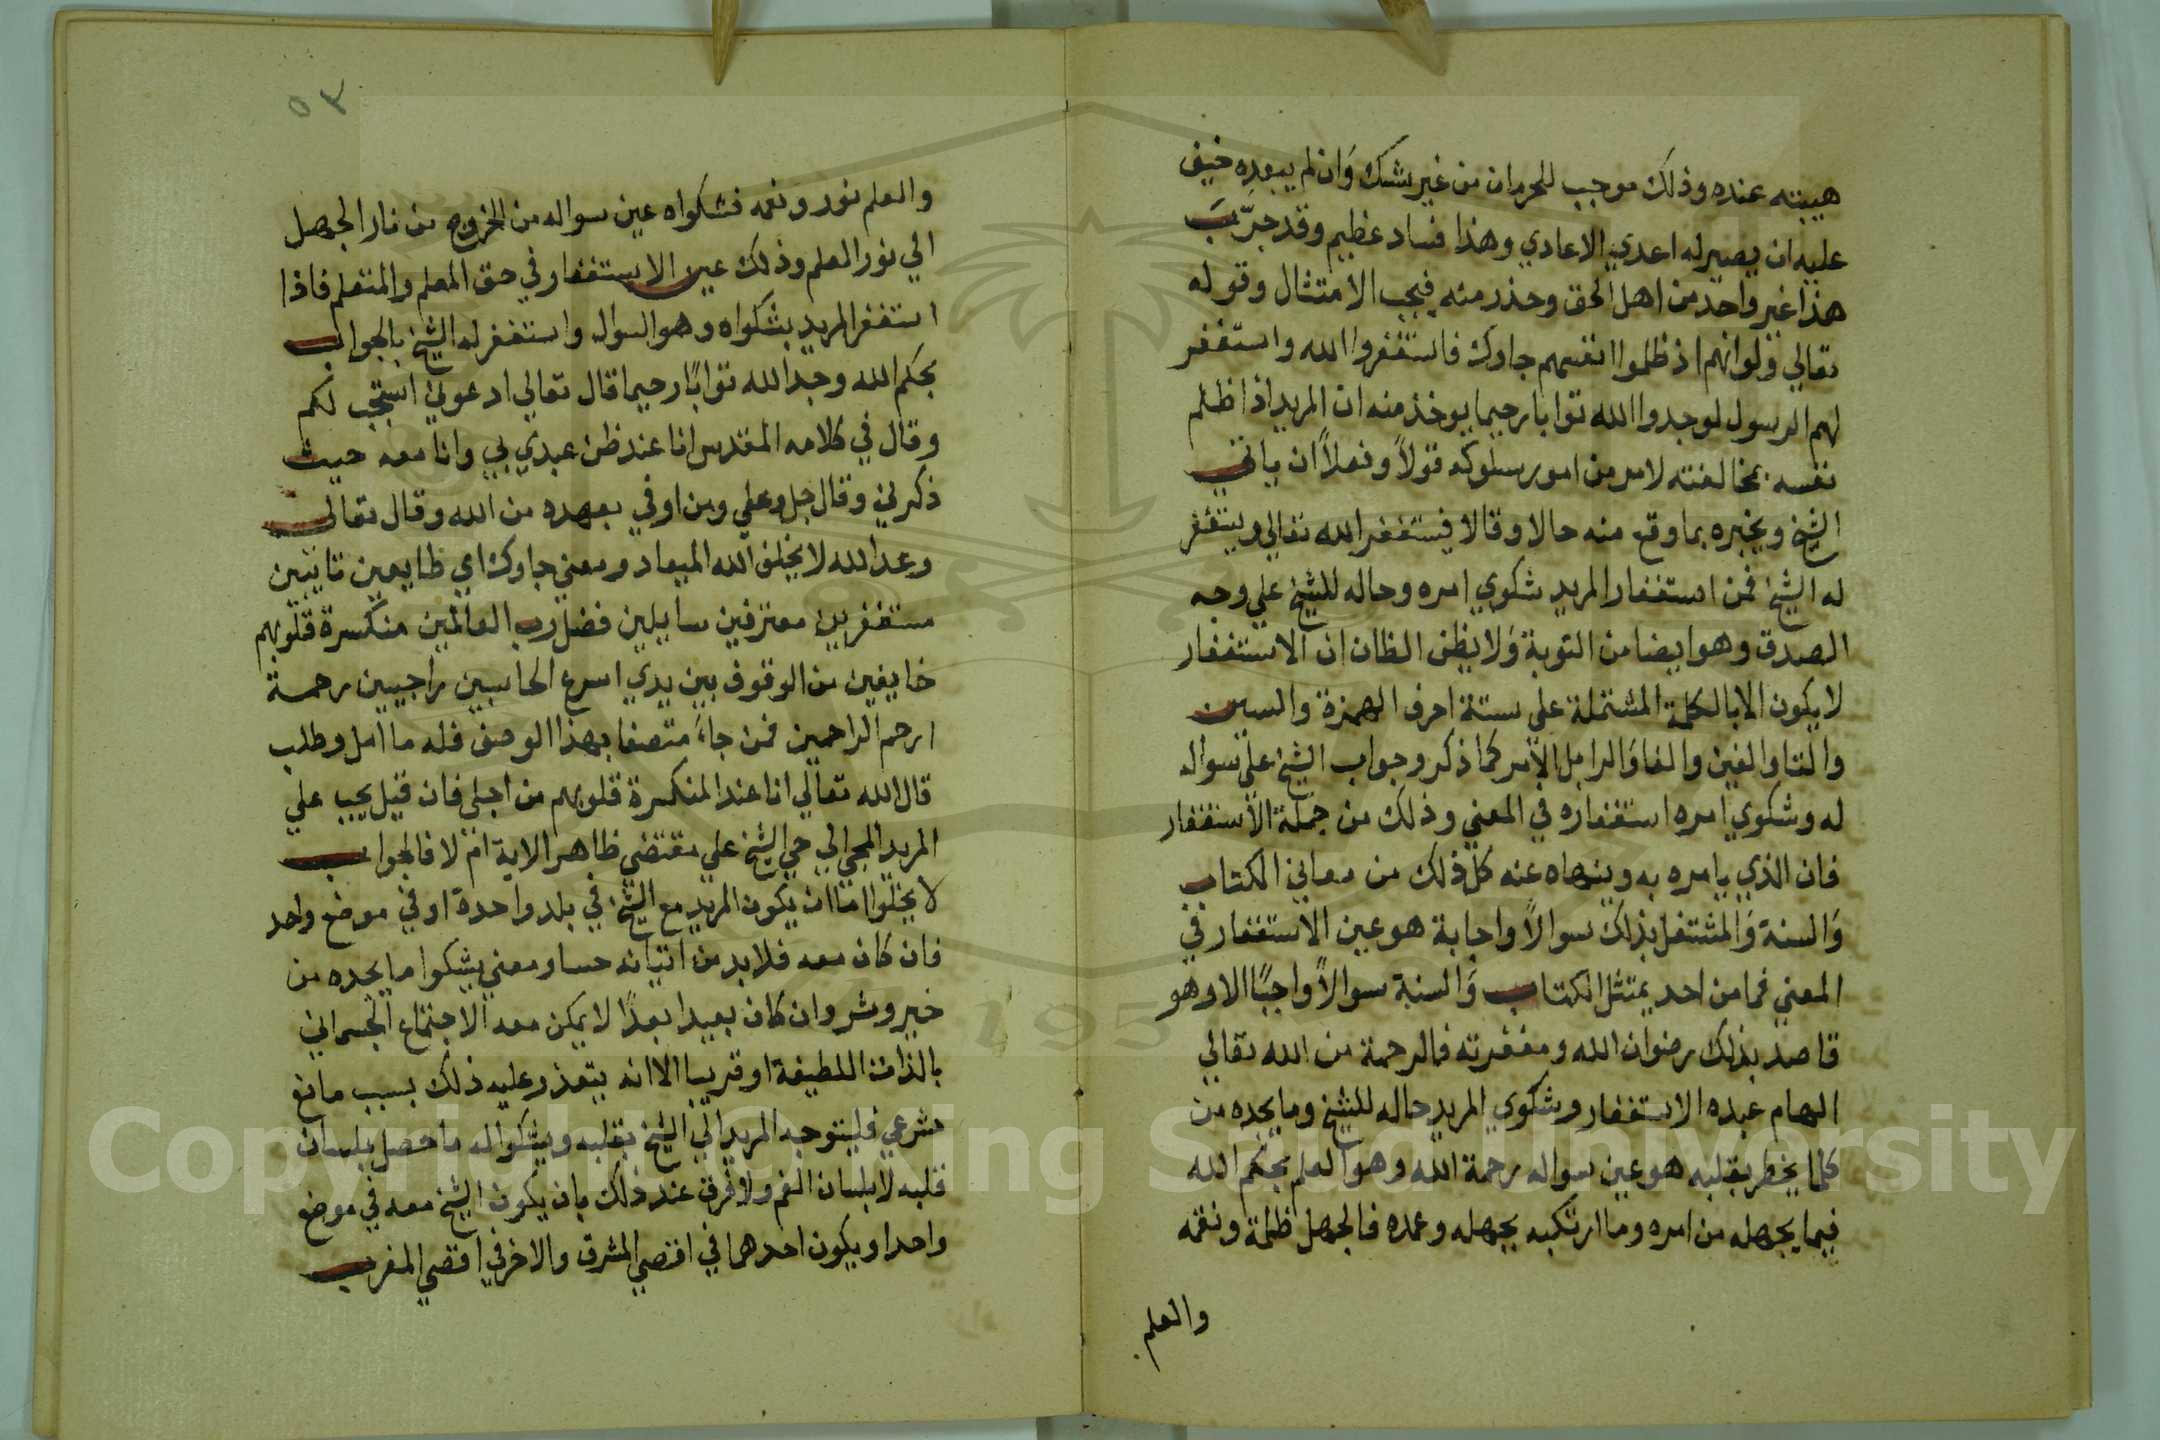 هيبته عنده وذلك موجب للحرمان من غير شك وان لم يبعده خيف
عليه ان يصير له اعدي الاعادي وهذا فساد عظيم وقد جرّب
هذا غير واحد من اهل الحق وحذر منه فيجب الامتثال وقوله
تعالي ولو انهم اذ ظلموا انفسهم جاوك فاستغفروا الله واستغفر
لهم الرسول لوجدوا الله توابا رحيما يوخذ منه ان المريد اذا ظلم
نفسه بمخالفته لامر من امور سلوكه قولاً وفعلاً ان ياتي
الشيخ ويخبره بما وقع منه حالا وقالا فيستغفر الله تعالي ويستغفر
له الشيخ فمن استغفار المريد شكوي امره وحاله للشيخ علي وجه
الصدق وهو ايضا من التوبة ولا يظن الظان ان الاستغفار
لا يكون الا بالكلمة المشتملة علي ستة احرف الهمزة والسين
والتا والغين والفا والرا بل الامر كما ذكر وجواب الشيخ علي سواله
له وشكوي امره استغفاره في المعني وذلك من جملة الاستغفار
فان الذي يامره به وينهاه عنه كل ذلك من معاني الكتاب
والسنة والمشتغل بذلك سوالاً واجابة هو عين الاستغفار في
المعني فما من احد يمتثل الكتاب والسنة سوالاً واجبًا الا وهو
قاصد بذلك رضوان الله ومغفرته فالرحمة من الله تعالي
الهام عبده الاستغفار وشكوي المريد حاله للشيخ وما يجده من
كلما يخطر بقلبه هو عين سواله رحمة الله وهو العلم بحكم الله
فيما يجهله من امره وما ارتكبه بجهله وعمده فالجهل ظلمة ونقمه
والعلم
٥٣
والعلم نور ونعمه فشكواه عين سواله من الخروج من نار الجهل
الي نور العلم وذلك عين الاستغفار في حق المعلم والمتعلم فاذا
استغفر المريد بشكواه وهو السوال واستغفر له الشيخ بالجواب
بحكم الله وجد الله توابًا رحيما قال تعالي ادعوني استجب لكم
وقال في كلامه المقدس انا عند ظن عبدي بي وانا معه حيث
ذكرني وقال جل وعلي ومن اوفي بعهده من الله وقال تعالي
وعد الله لا يخلف الله الميعاد ومعني جاوك اي طايعين تايبين
مستغفرين معترفين سايلين فضل رب العالمين منكسرة قلوبهم
خايفين من الوقوف بين يدي اسرع الحاسبين راجيين رحمة
ارحم الراحمين فمن جاء متصفا بهذا الوصف فله ما امل وطلب
قال الله تعالي انا عند المنكسرة قلوبهم من اجلي فان قيل يجب علي
المريد المجي الي حي الشيخ علي مقتضي ظاهر الاية ام لا فالجواب
لا يخلوا اما ان يكون المريد مع الشيخ في بلد واحدة او في موضع واحد
فان كان معه فلا بد من اتيانه حسا ومعني يشكوا ما يجده من
خير وشر وان كان بعيدا بعدًا لا يمكن معه الاجتماع الجسماني
بالذات اللطيفة او قريبا الا انه يتعذر عليه ذلك بسبب مانع
شرعي فليتوجه المريد الي الشيخ بقلبه ويشكوا له ما حصل بلسان
قلبه لا بلسان الفم ولا فرق عند ذلك بان يكون الشيخ معه في موضع
واحد او يكون احدهما في اقصي المشرق والاخر في اقصي المغرب
Copyright © King Saud University
195